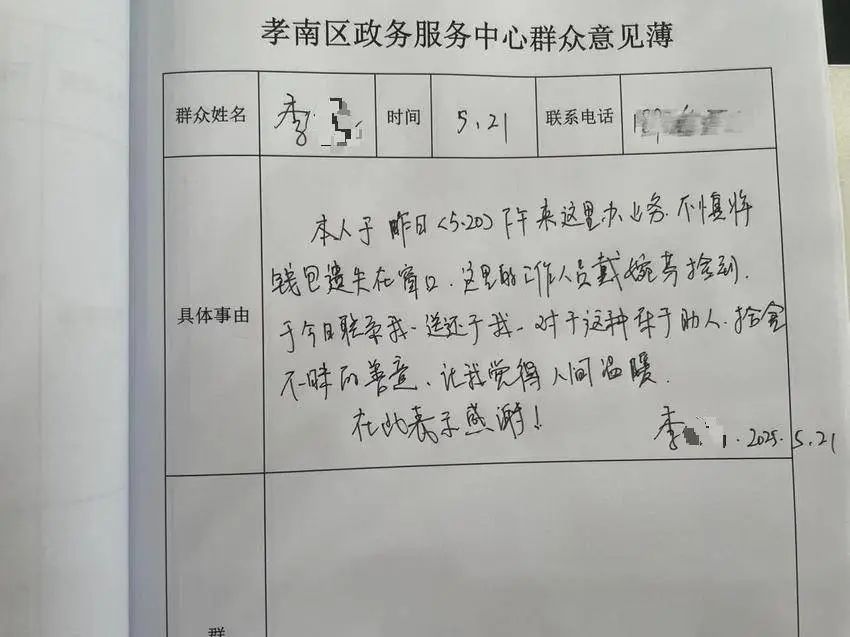 孝南区政务服务中心群众意见薄
群众姓名 李 时间 5.21 联系电话
具体事由
本人于昨日(5.20)下午来这里办业务.不慎将
钱包遗失在窗口.这里的工作人员戴婉芳拾到.
于今日联系我.送还于我.对于这种乐于助人.拾金
不昧的善意.让我觉得人间温暖.
在此表示感谢!
李 .2025.5.21
群